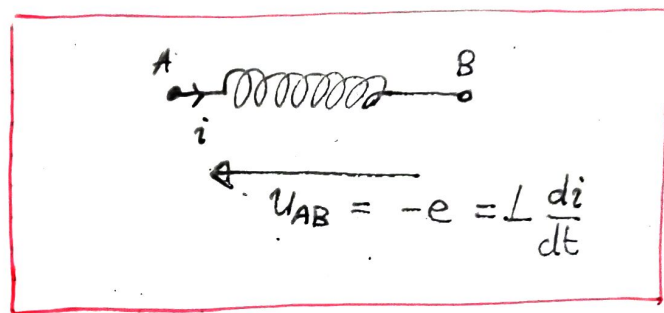 A B
i
U_AB = -e = L di/dt